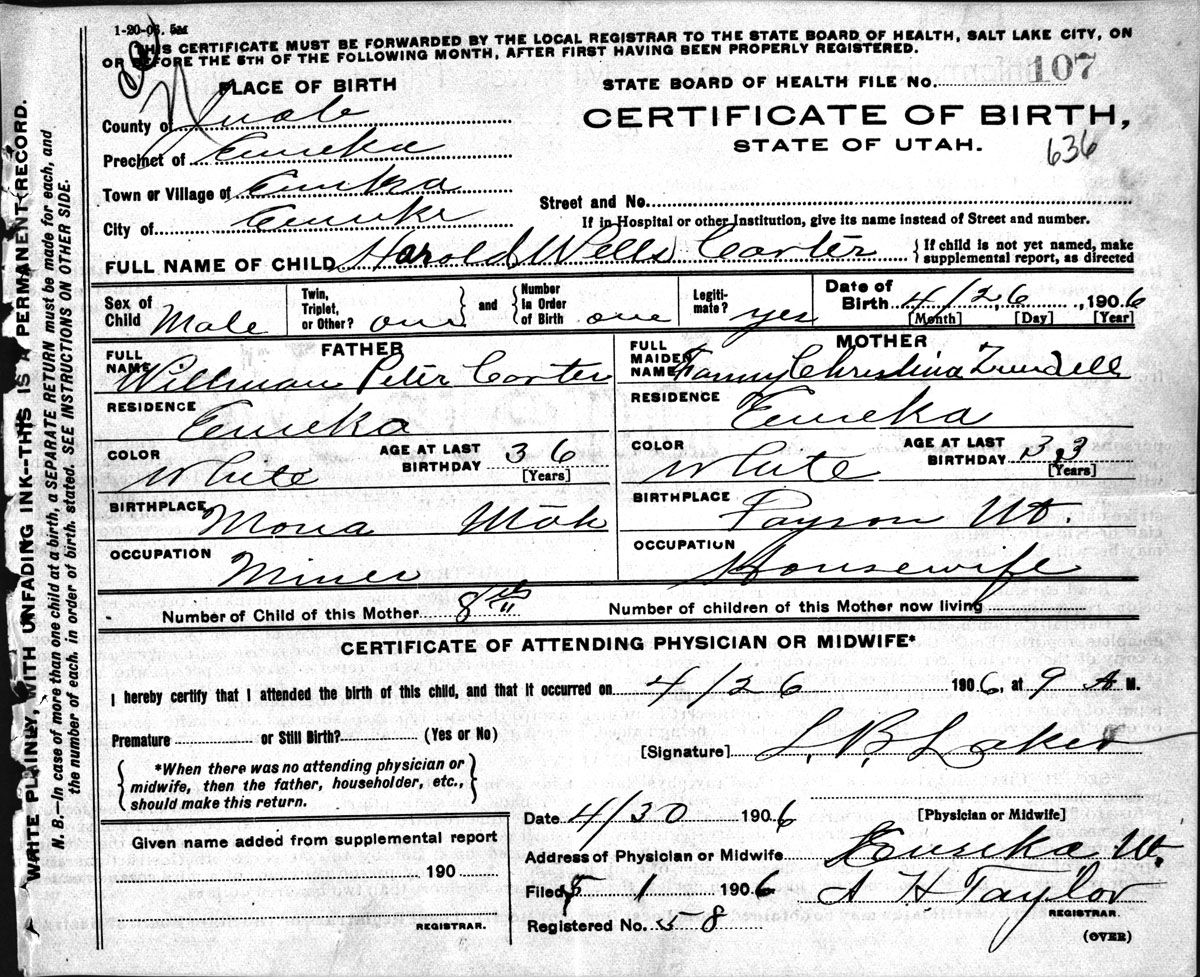 1-20-06. 5M
THIS CERTIFICATE MUST BE FORWARDED BY THE LOCAL REGISTRAR TO THE STATE BOARD OF HEALTH, SALT LAKE CITY, ON
OR BEFORE THE 5TH OF THE FOLLOWING MONTH, AFTER FIRST HAVING BEEN PROPERLY REGISTERED.
PLACE OF BIRTH
STATE BOARD OF HEALTH FILE NO. 107
County of Juab
CERTIFICATE OF BIRTH,
Precinct of Eureka
STATE OF UTAH.
636
Town or Village of Eureka
Street and No.
City of Eureka
If in Hospital or other Institution, give its name instead of Street and number.
FULL NAME OF CHILD Harold Wells Carter
{If child is not yet named, make
supplemental report, as directed
Sex of Child Male
Twin, Triplet, or Other? one } and { Number in Order of Birth one
Legiti-mate? yes
Date of Birth 4/26, 1906
[Month] [Day] [Year]
FATHER
MOTHER
FULL NAME Willman Peter Carter
FULL MAIDEN NAME Fanny Christina
RESIDENCE Eureka
RESIDENCE Eureka
COLOR White
AGE AT LAST BIRTHDAY 36 [Years]
COLOR White
AGE AT LAST BIRTHDAY 33 [Years]
BIRTHPLACE Mona Utah
BIRTHPLACE Payson Ut.
OCCUPATION Miner
OCCUPATION Housewife
Number of Child of this Mother 8th
Number of children of this Mother now living
CERTIFICATE OF ATTENDING PHYSICIAN OR MIDWIFE*
I hereby certify that I attended the birth of this child, and that it occurred on 4/26 1906, at 9 A M.
Premature or Still Birth? (Yes or No)
[Signature] S. B. Laker
{ *When there was no attending physician or
midwife, then the father, householder, etc.,
should make this return. }
Date 4/30 1906
[Physician or Midwife]
Given name added from supplemental report
190
REGISTRAR.
Address of Physician or Midwife Eureka Ut.
Filed 5 1 1906 A H Taylor
REGISTRAR.
Registered No. 58
(OVER)
WRITE PLAINLY, WITH UNFADING INK--THIS IS A PERMANENT RECORD.
N. B.—In case of more than one child at a birth, a SEPARATE RETURN must be made for each, and
the number of each, in order of birth, stated. SEE INSTRUCTIONS ON OTHER SIDE.